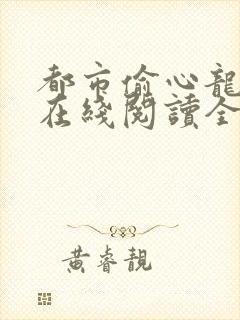 都市偷心龍
在綫閱讀全
黃睿靚